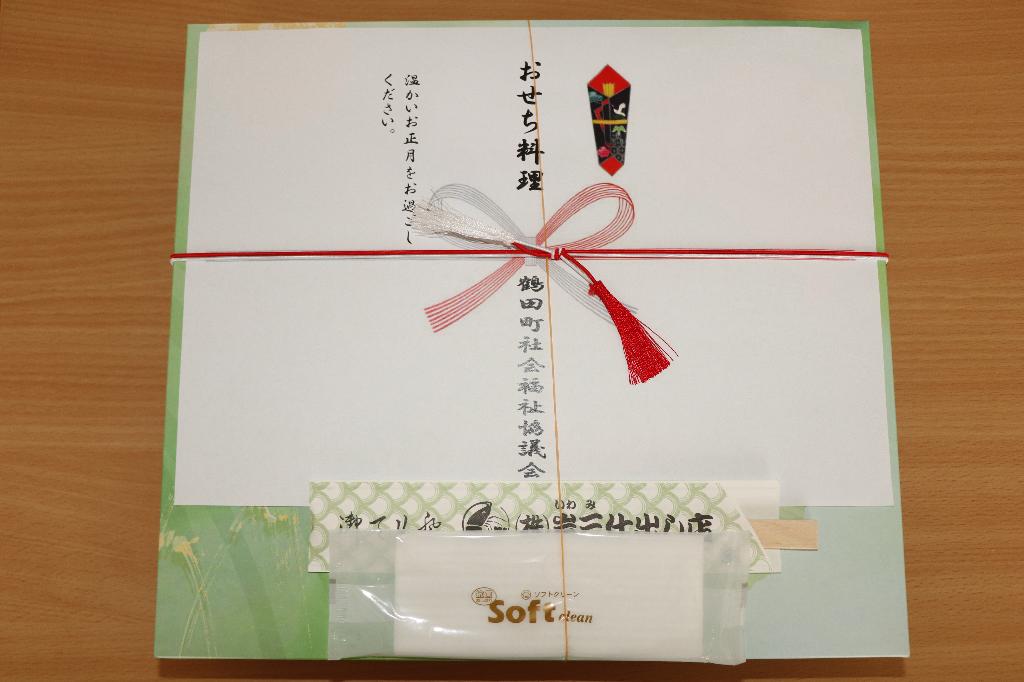 おせち料理
温かいお正月をお過ごし
ください。
鶴田町社会福祉協議会
いわみ
ソフトクリーン
Soft clean